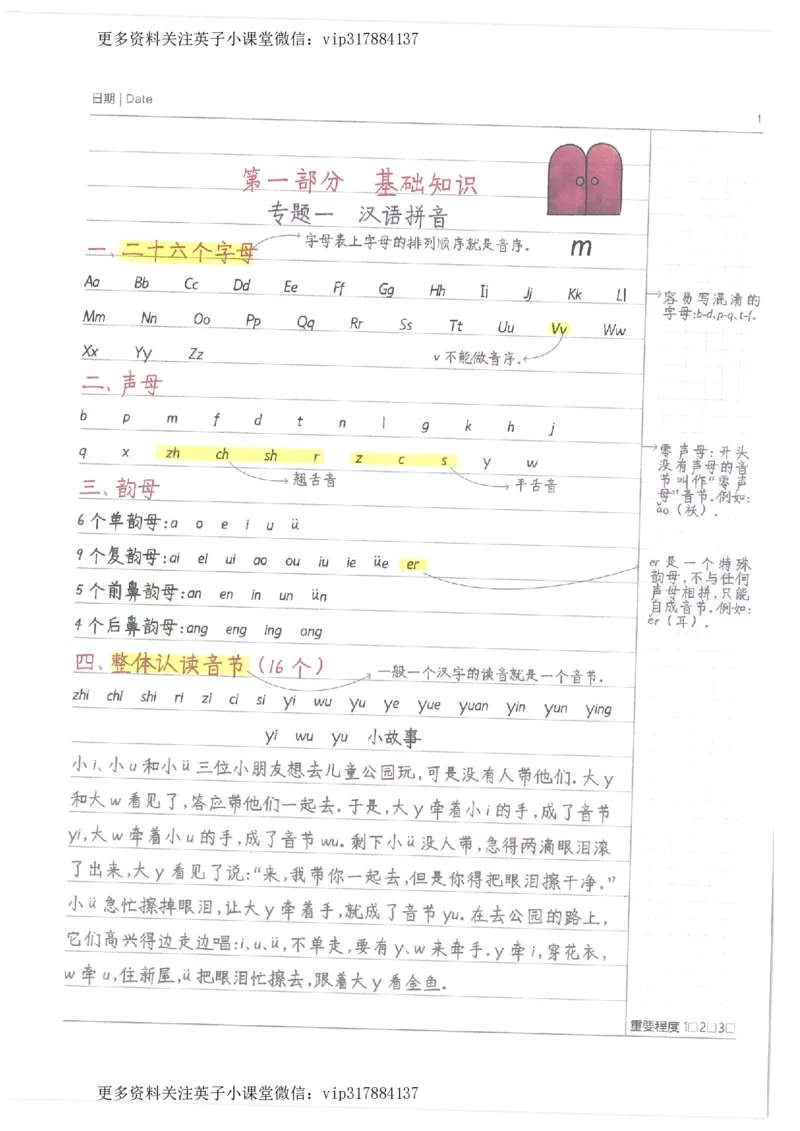 更多资料关注英子小课堂微信：vip317884137
日期 | Date
1
第一部分 基础知识
专题一 汉语拼音
m
一、二十六个字母
字母表上字母的排列顺序就是音序。
Aa Bb Cc Dd Ee Ff Gg Hh Ii Jj Kk Ll
容易写混淆的
字母:b-d、p-q、t-f。
Mm Nn Oo Pp Qq Rr Ss Tt Uu Vv Ww
Xx Yy Zz
v不能做音序。
二、声母
b p m f d t n l g k h j
q x zh ch sh r z c s y w
翘舌音
平舌音
零声母:开头
没有声母的音
节叫作“零声
母”音节。例如:
ǎo(袄)。
三、韵母
6个单韵母:a o e i u ü
9个复韵母:ai ei ui ao ou iu ie üe er
er是一个特殊
韵母,不与任何
声母相拼,只能
自成音节。例如:
ěr(耳)。
5个前鼻韵母:an en in un ün
4个后鼻韵母:ang eng ing ong
四、整体认读音节(16个)
一般一个汉字的读音就是一个音节。
zhi chi shi ri zi ci si yi wu yu ye yue yuan yin yun ying
yi wu yu 小故事
小i、小u和小ü三位小朋友想去儿童公园玩,可是没有人带他们。大y
和大w看见了,答应带他们一起去。于是,大y牵着小i的手,成了音节
yi,大w牵着小u的手,成了音节wu。剩下小ü没人带,急得两滴眼泪滚
了出来,大y看见了说:“来,我带你一起去,但是你得把眼泪擦干净。”
小ü急忙擦掉眼泪,让大y牵着手,就成了音节yu。在去公园的路上,
它们高兴得边走边唱:i、u、ü,不单走,要有y、w来牵手。y牵i,穿花衣,
w牵u,住新屋,ü把眼泪忙擦去,跟着大y看金鱼。
重要程度 1□2□3□
更多资料关注英子小课堂微信：vip317884137